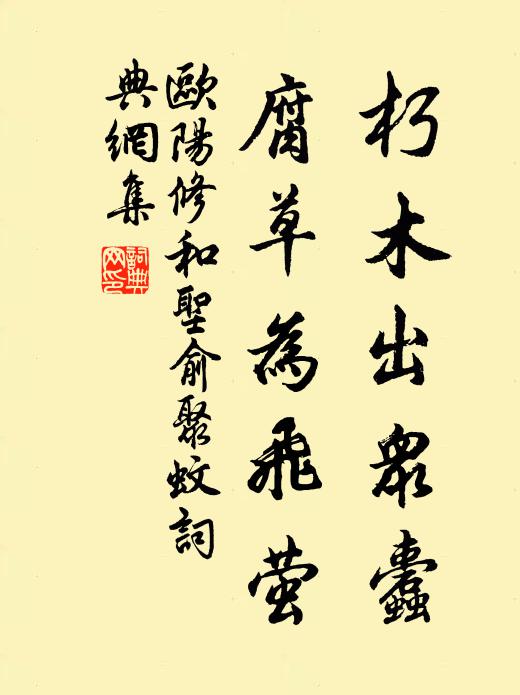 朽木出衆蠹
腐草為飛萤
歐陽修和聖俞聚蚊詞
典網集
詞典网印